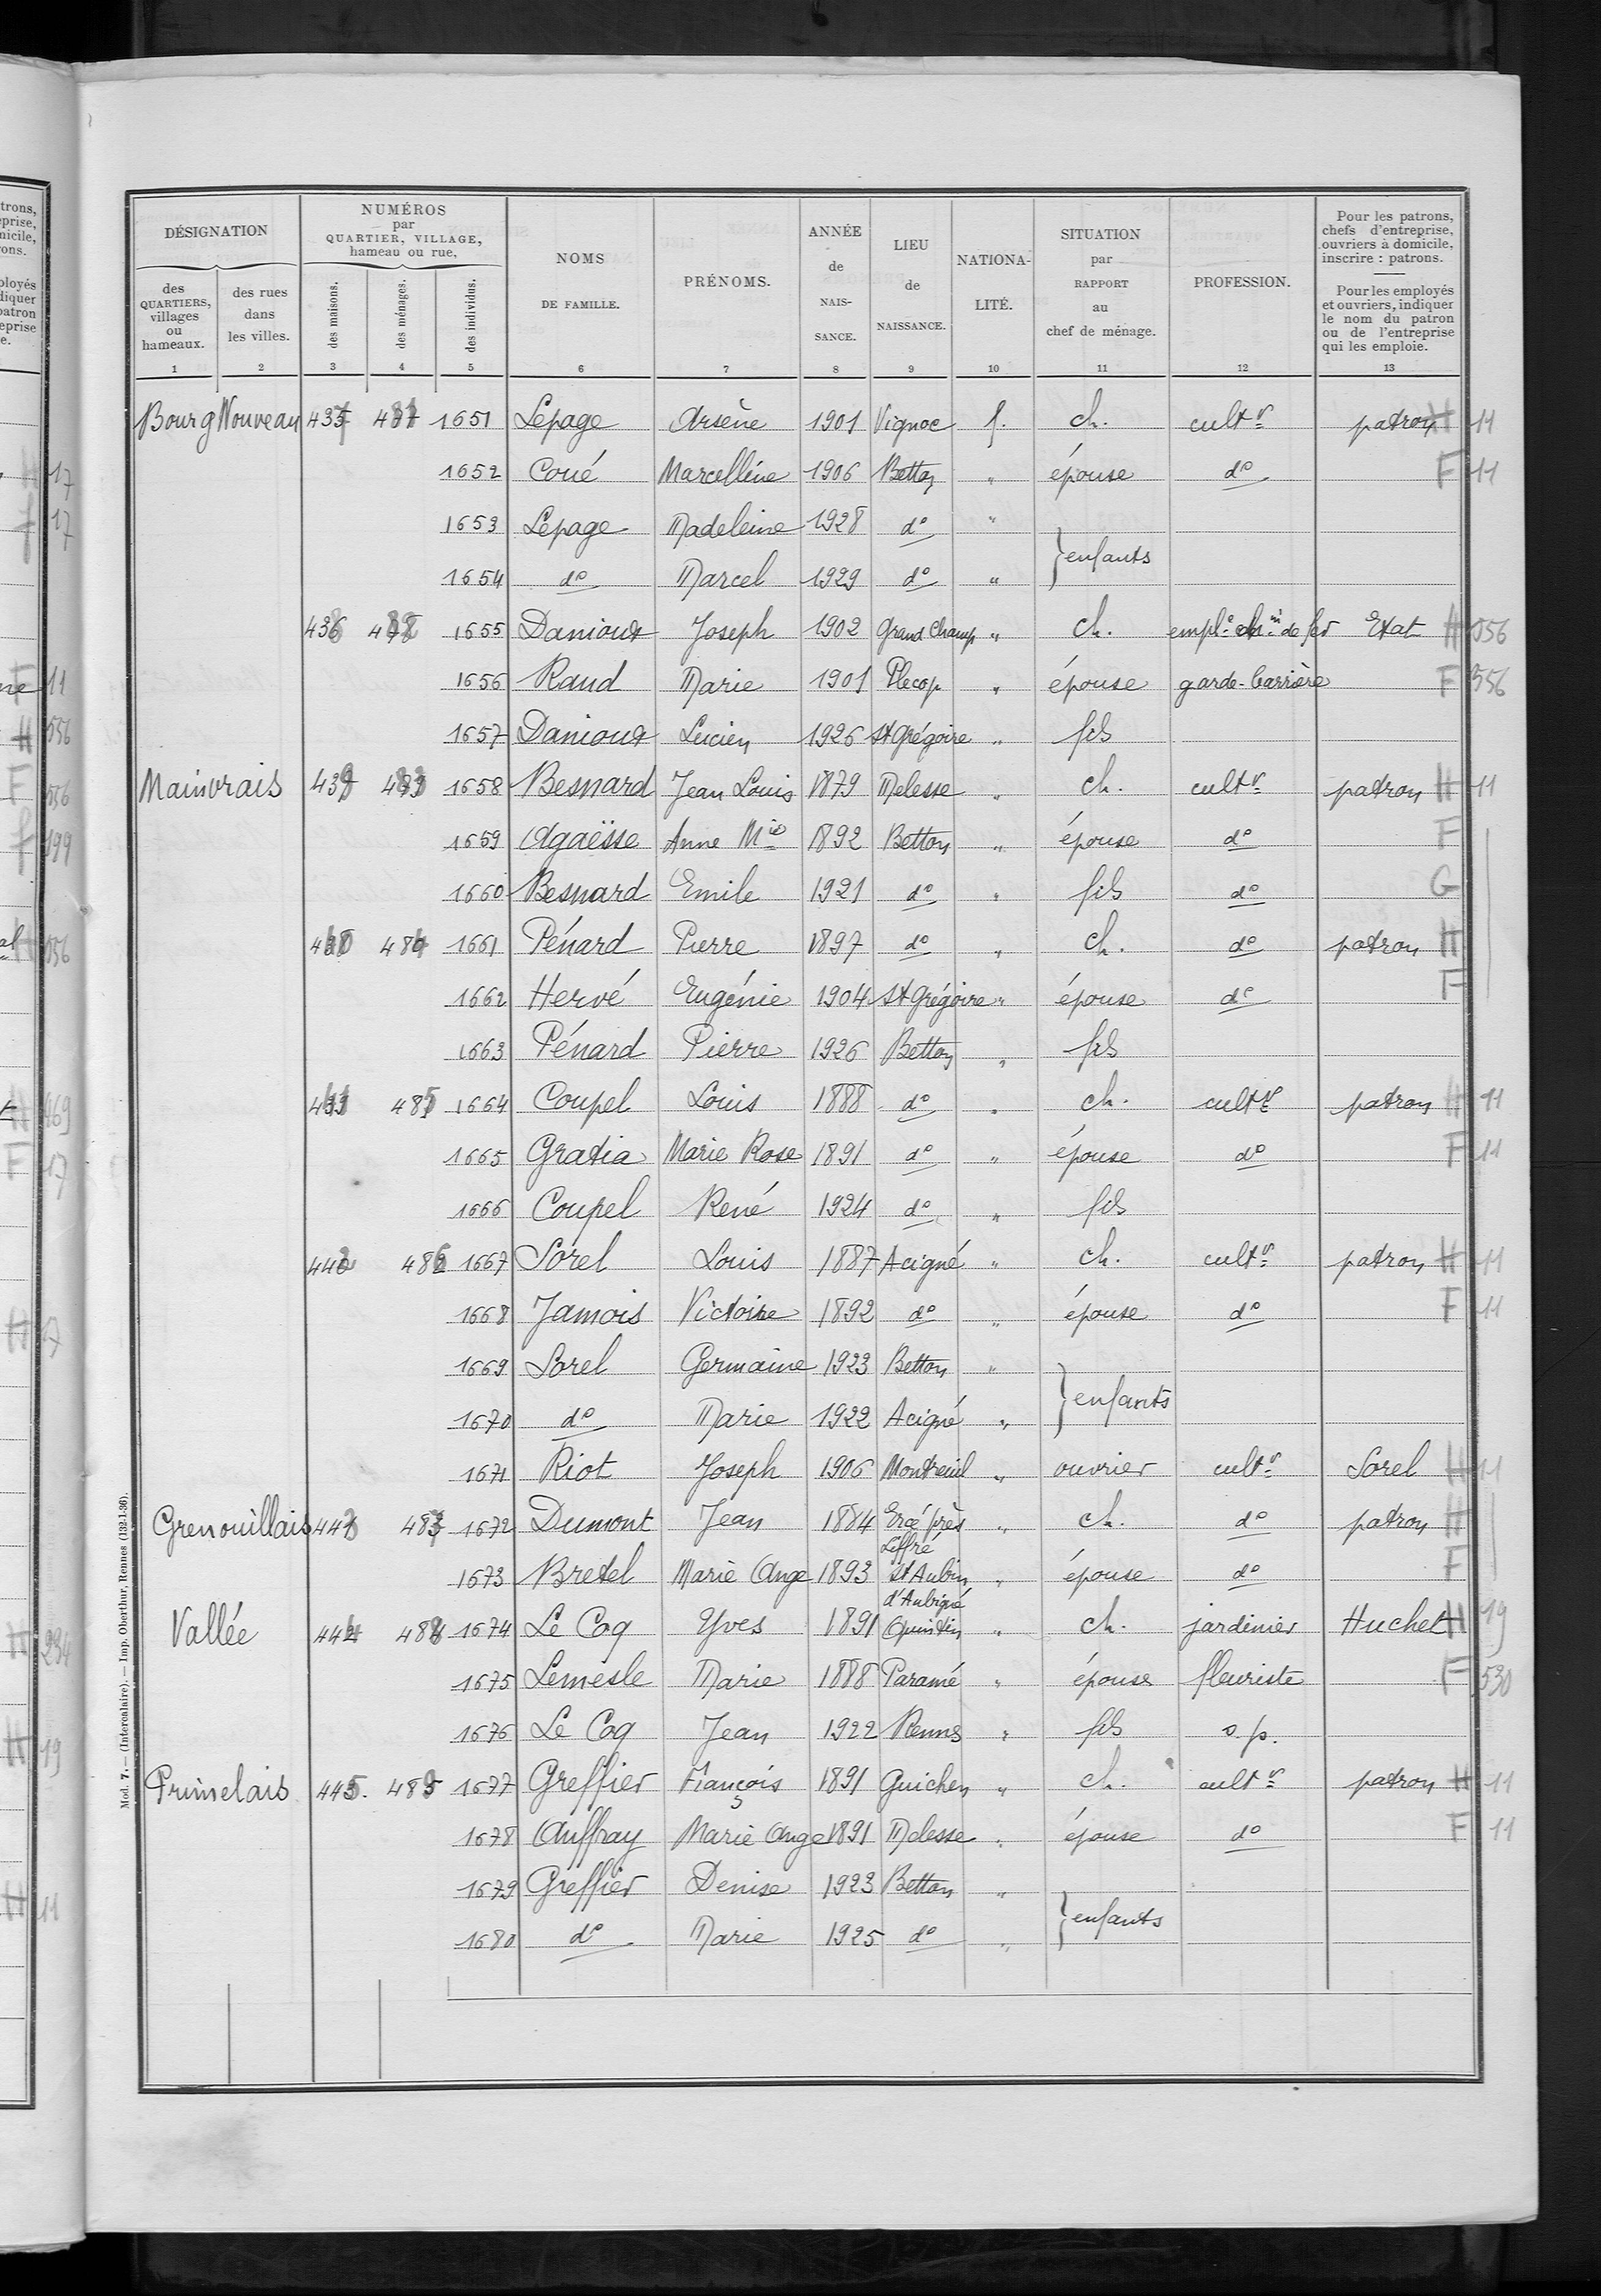 DÉSIGNATION | NUMÉROS par QUARTIER, VILLAGE, hameau ou rue, | NOMS DE FAMILLE. | PRÉNOMS. | ANNÉE de NAIS-SANCE. | LIEU de NAISSANCE. | NATIONA-LITÉ. | SITUATION par RAPPORT au chef de ménage. | PROFESSION. | Pour les patrons, chefs d'entreprise, ouvriers à domicile, inscrire : patrons. Pour les employés et ouvriers, indiquer le nom du patron ou de l'entreprise qui les emploie.
des QUARTIERS, villages ou hameaux. | des rues dans les villes. | des maisons. | des ménages. | des individus.
1 2 3 4 5 6 7 8 9 10 11 12 13
Bourg Nouveau 1651 Lepage Arsène 1901 Vignoc f. ch. cultr patron H 11
1652 Coué Marcelline 1906 Betton " épouse do F 11
1653 Lepage Madeleine 1928 do "
} enfants
1654 do Marcel 1929 do "
1655 Danioux Joseph 1902 Grand Champ " ch. emplé chin de fer Etat H 556
1656 Raud Marie 1901 Plecop " épouse garde-barrière F 556
1657 Danioux Lucien 1926 St Grégoire " fils
Mainvrais 1658 Besnard Jean Louis 1879 Melesse " ch. cultr patron H 11
1659 Agaësse Anne Mie 1892 Betton " épouse do F
1660 Besnard Emile 1921 do " fils do G
1661 Pénard Pierre 1897 do " ch. do patron H
1662 Hervé Eugénie 1904 St Grégoire " épouse do F
1663 Pénard Pierre 1926 Betton " fils
1664 Coupel Louis 1888 do " ch. cultr patron H 11
1665 Gratia Marie Rose 1891 do " épouse do F 11
1666 Coupel René 1924 do " fils
1667 Sorel Louis 1887 Acigné " ch. cultr patron H 11
1668 Jamois Victoire 1892 do " épouse do F 11
1669 Sorel Germaine 1923 Betton "
} enfants
1670 do Marie 1922 Acigné "
1671 Riot Joseph 1906 Montreuil " ouvrier cultr Sorel H 11
Grenouillais 1672 Dumont Jean 1884 Ercé près Liffré " ch. do patron H
1673 Bretel Marie Ange 1893 St Aubin d'Aubigné " épouse do F
Vallée 1674 Le Coq Yves 1891 Quintin " ch. jardinier Huchet H 19
1675 Lemesle Marie 1888 Paramé " épouse fleuriste F 530
1676 Le Coq Jean 1922 Rennes " fils s.p.
Primelais 1677 Greffier François 1891 Guichen " ch. cultr patron H 11
1678 Auffray Marie Ange 1891 Melesse " épouse do F 11
1679 Greffier Denise 1923 Betton "
} enfants
1680 do Marie 1925 do "
Mod. 7. — (Intercalaire). — Imp. Oberthur, Rennes (132-1-36).